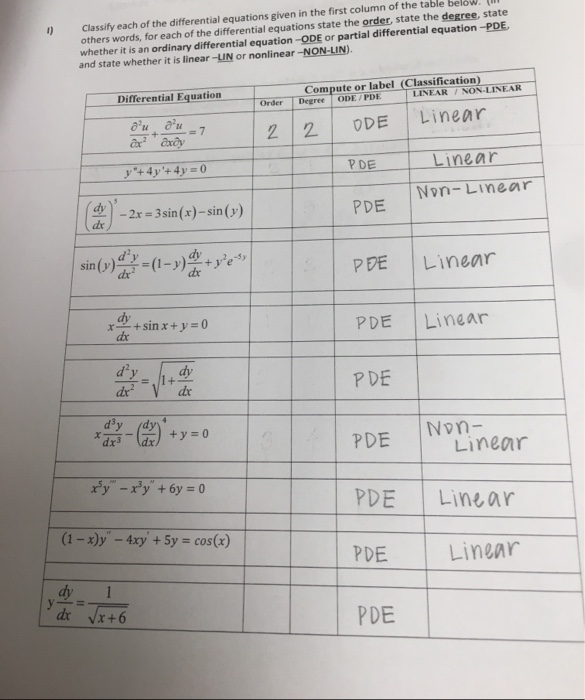 1) Classify each of the differential equations given in the first column of the table below. (In
others words, for each of the differential equations state the order, state the degree, state
whether it is an ordinary differential equation –ODE or partial differential equation –PDE,
and state whether it is linear –LIN or nonlinear –NON-LIN).
Differential Equation Compute or label (Classification)
Order Degree ODE / PDE LINEAR / NON-LINEAR
∂²u/∂x² + ∂²u/∂x∂y = 7 2 2 ODE Linear
y"+4y'+4y=0 PDE Linear
(dy/dx)⁵ – 2x = 3sin(x) – sin(y) PDE Non-Linear
sin(y) d²y/dx² = (1–y) dy/dx + y²e⁻⁵ʸ PDE Linear
x dy/dx + sin x + y = 0 PDE Linear
d²y/dx² = √(1+ dy/dx) PDE
x d³y/dx³ – (dy/dx)⁴ + y = 0 PDE Non-
Linear
x⁵y''' – x³y'' + 6y = 0 PDE Linear
(1 – x)y'' – 4xy' + 5y = cos(x) PDE Linear
y dy/dx = 1/√x+6 PDE